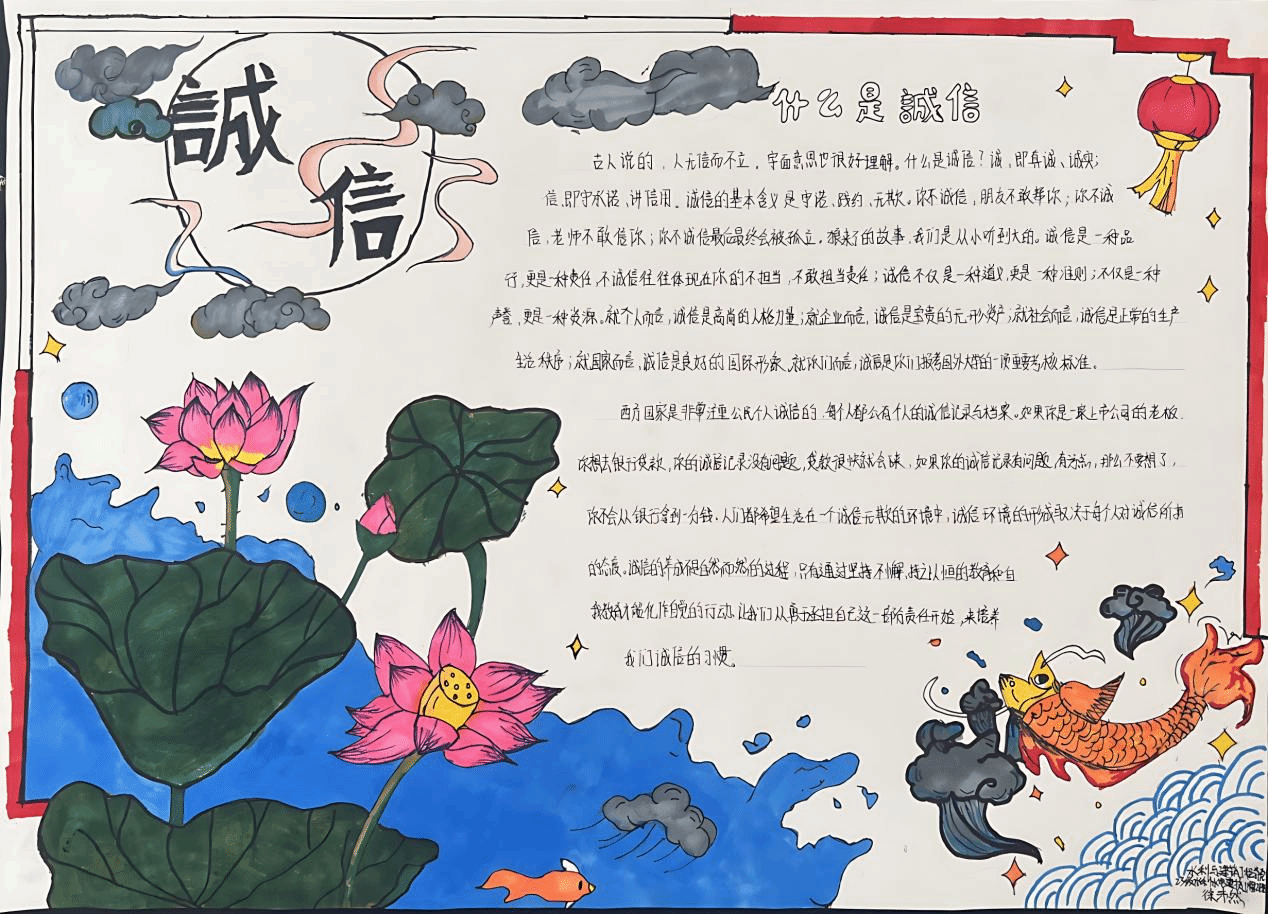 誠
信
什么是誠信
古人说的，人无信而不立，字面意思也很好理解。什么是诚信？诚，即真诚、诚实；
信，即守承诺、讲信用。诚信的基本含义是守诺、践约、无欺。你不诚信，朋友不敢帮你；你不诚
信，老师不敢信你；你不诚信最后最终会被孤立。狼来了的故事，我们是从小听到大的。诚信是一种品
行，更是一种责任，不诚信往往体现在你的不担当，不敢担当责任；诚信不仅是一种道义，更是一种准则；不仅是一种
声誉，更是一种资源。就个人而言，诚信是高尚的人格力量；就企业而言，诚信是宝贵的无形资产；就社会而言，诚信是正常的生产
生活秩序；就国家而言，诚信是良好的国际形象。就你们而言，诚信是你们报考国外大学的一项重要考核标准。
西方国家是非常注重公民个人诚信的，每个人都会有个人的诚信记录与档案。如果你是一家上市公司的老板，
你想去银行贷款，你的诚信记录没有问题，贷款很快就会来，如果你的诚信记录有问题，有污点，那么不要想了，
你不会从银行拿到一分钱。人们都希望生活在一个诚信无欺的环境中，诚信环境的形成取决于每个人对诚信所抱
的态度。诚信的养成很自然而然的过程，只有通过坚持不懈、持之以恒的教育和自
我教育才能化作自觉的行动，让我们从勇于承担自己这一部分责任开始，来培养
我们诚信的习惯。
徐